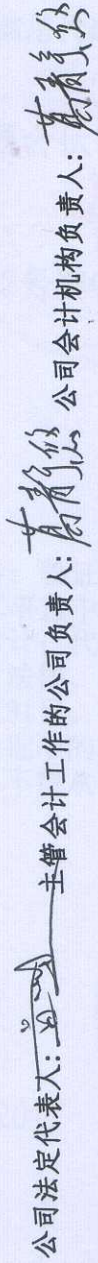 公司法定代表人： 主管会计工作的公司负责人： 公司会计机构负责人：